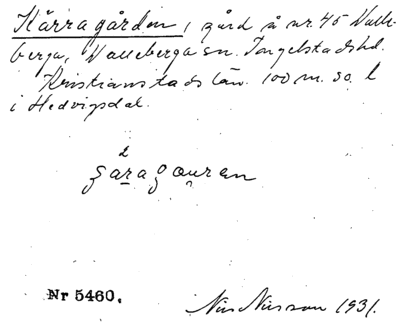 Kärragården, gård å nr. 45 Valle-
berga, Valleberga sn. Ingelstads hd.
Kristianstads län. 100 m. so.
i Hedvigsdal.
Nr 5460.
Nils Nilsson 1931.